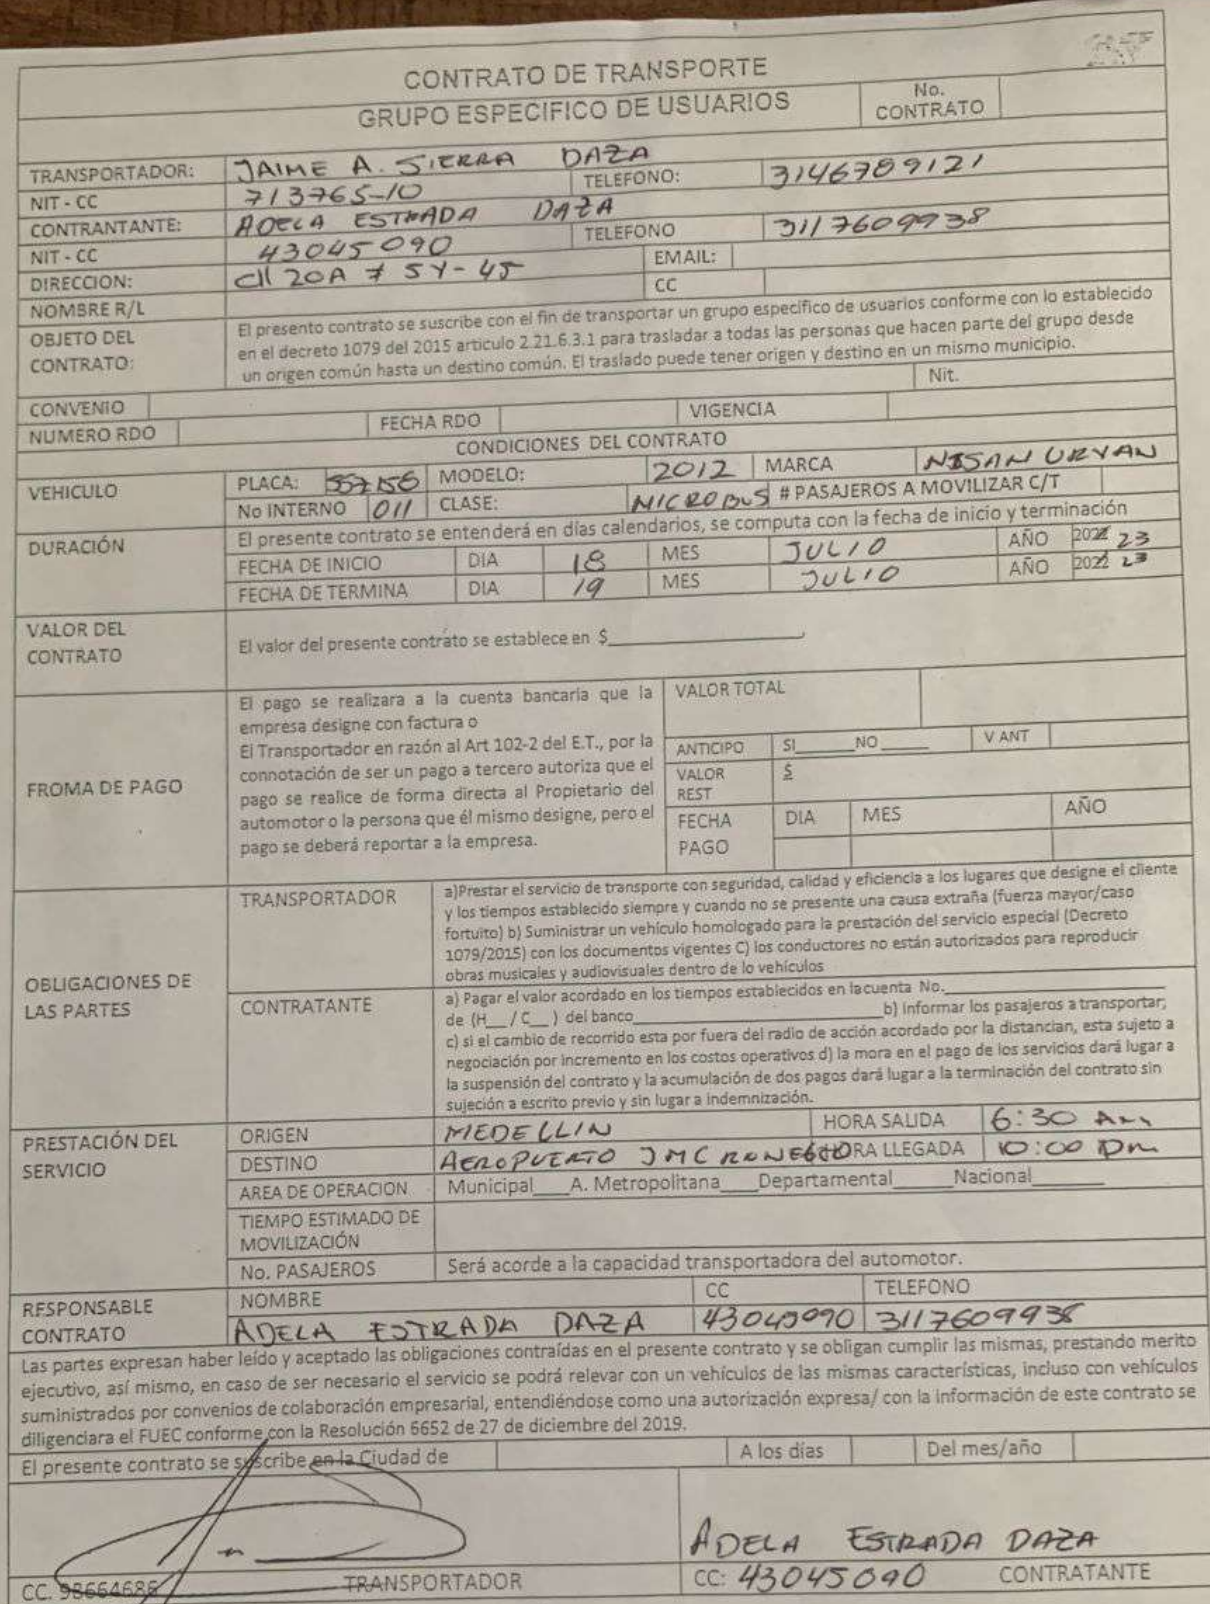 CONTRATO DE TRANSPORTE
GRUPO ESPECIFICO DE USUARIOS
No. CONTRATO
TRANSPORTADOR: JAIME A. SIERRA DAZA
NIT - CC 713765-10 TELEFONO: 3146789121
CONTRANTANTE: ADELA ESTRADA DAZA
NIT - CC 43045090 TELEFONO 3117609938
DIRECCION: Cll 20A # 5Y-45 EMAIL:
NOMBRE R/L CC
OBJETO DEL CONTRATO:
El presento contrato se suscribe con el fin de transportar un grupo específico de usuarios conforme con lo establecido
en el decreto 1079 del 2015 articulo 2.21.6.3.1 para trasladar a todas las personas que hacen parte del grupo desde
un origen común hasta un destino común. El traslado puede tener origen y destino en un mismo municipio.
CONVENIO Nit.
NUMERO RDO FECHA RDO VIGENCIA
CONDICIONES DEL CONTRATO
VEHICULO PLACA: MODELO: 2012 MARCA NISSAN URVAN
No INTERNO 011 CLASE: MICROBUS # PASAJEROS A MOVILIZAR C/T
DURACIÓN El presente contrato se entenderá en días calendarios, se computa con la fecha de inicio y terminación
FECHA DE INICIO DIA 18 MES JULIO AÑO 2022 23
FECHA DE TERMINA DIA 19 MES JULIO AÑO 2022 23
VALOR DEL CONTRATO El valor del presente contrato se establece en $
FROMA DE PAGO
El pago se realizara a la cuenta bancaria que la
empresa designe con factura o
El Transportador en razón al Art 102-2 del E.T., por la
connotación de ser un pago a tercero autoriza que el
pago se realice de forma directa al Propietario del
automotor o la persona que él mismo designe, pero el
pago se deberá reportar a la empresa.
VALOR TOTAL
ANTICIPO SI______NO______ V ANT
VALOR REST $
FECHA PAGO DIA MES AÑO
OBLIGACIONES DE LAS PARTES
TRANSPORTADOR
a)Prestar el servicio de transporte con seguridad, calidad y eficiencia a los lugares que designe el cliente
y los tiempos establecido siempre y cuando no se presente una causa extraña (fuerza mayor/caso
fortuito) b) Suministrar un vehículo homologado para la prestación del servicio especial (Decreto
1079/2015) con los documentos vigentes C) los conductores no están autorizados para reproducir
obras musicales y audiovisuales dentro de lo vehículos
CONTRATANTE
a) Pagar el valor acordado en los tiempos establecidos en lacuenta No.
de (H__ / C__ ) del banco______________________b) Informar los pasajeros a transportar;
c) si el cambio de recorrido esta por fuera del radio de acción acordado por la distancian, esta sujeto a
negociación por incremento en los costos operativos d) la mora en el pago de los servicios dará lugar a
la suspensión del contrato y la acumulación de dos pagos dará lugar a la terminación del contrato sin
sujeción a escrito previo y sin lugar a indemnización.
PRESTACIÓN DEL SERVICIO
ORIGEN MEDELLIN HORA SALIDA 6:30 Am
DESTINO AEROPUERTO JMC RIONEGRO HORA LLEGADA 10:00 Pm
AREA DE OPERACION Municipal____A. Metropolitana____Departamental______Nacional
TIEMPO ESTIMADO DE MOVILIZACIÓN
No. PASAJEROS Será acorde a la capacidad transportadora del automotor.
RESPONSABLE CONTRATO
NOMBRE CC TELEFONO
ADELA ESTRADA DAZA 43045090 3117609938
Las partes expresan haber leído y aceptado las obligaciones contraídas en el presente contrato y se obligan cumplir las mismas, prestando merito
ejecutivo, así mismo, en caso de ser necesario el servicio se podrá relevar con un vehículos de las mismas características, incluso con vehículos
suministrados por convenios de colaboración empresarial, entendiéndose como una autorización expresa/ con la información de este contrato se
diligenciara el FUEC conforme con la Resolución 6652 de 27 de diciembre del 2019.
El presente contrato se suscribe en la Ciudad de A los días Del mes/año
ADELA ESTRADA DAZA
CC. 98664686 TRANSPORTADOR CC: 43045090 CONTRATANTE